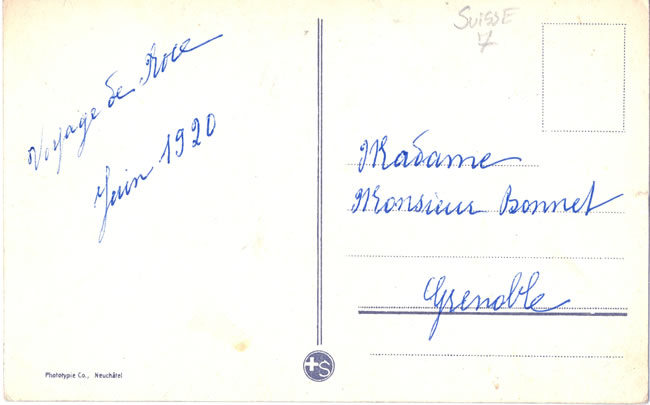 SUISSE
7
Voyage de Noce
Juin 1920
Madame
Monsieur Bonnet
Grenoble
Phototypie Co., Neuchâtel
+S